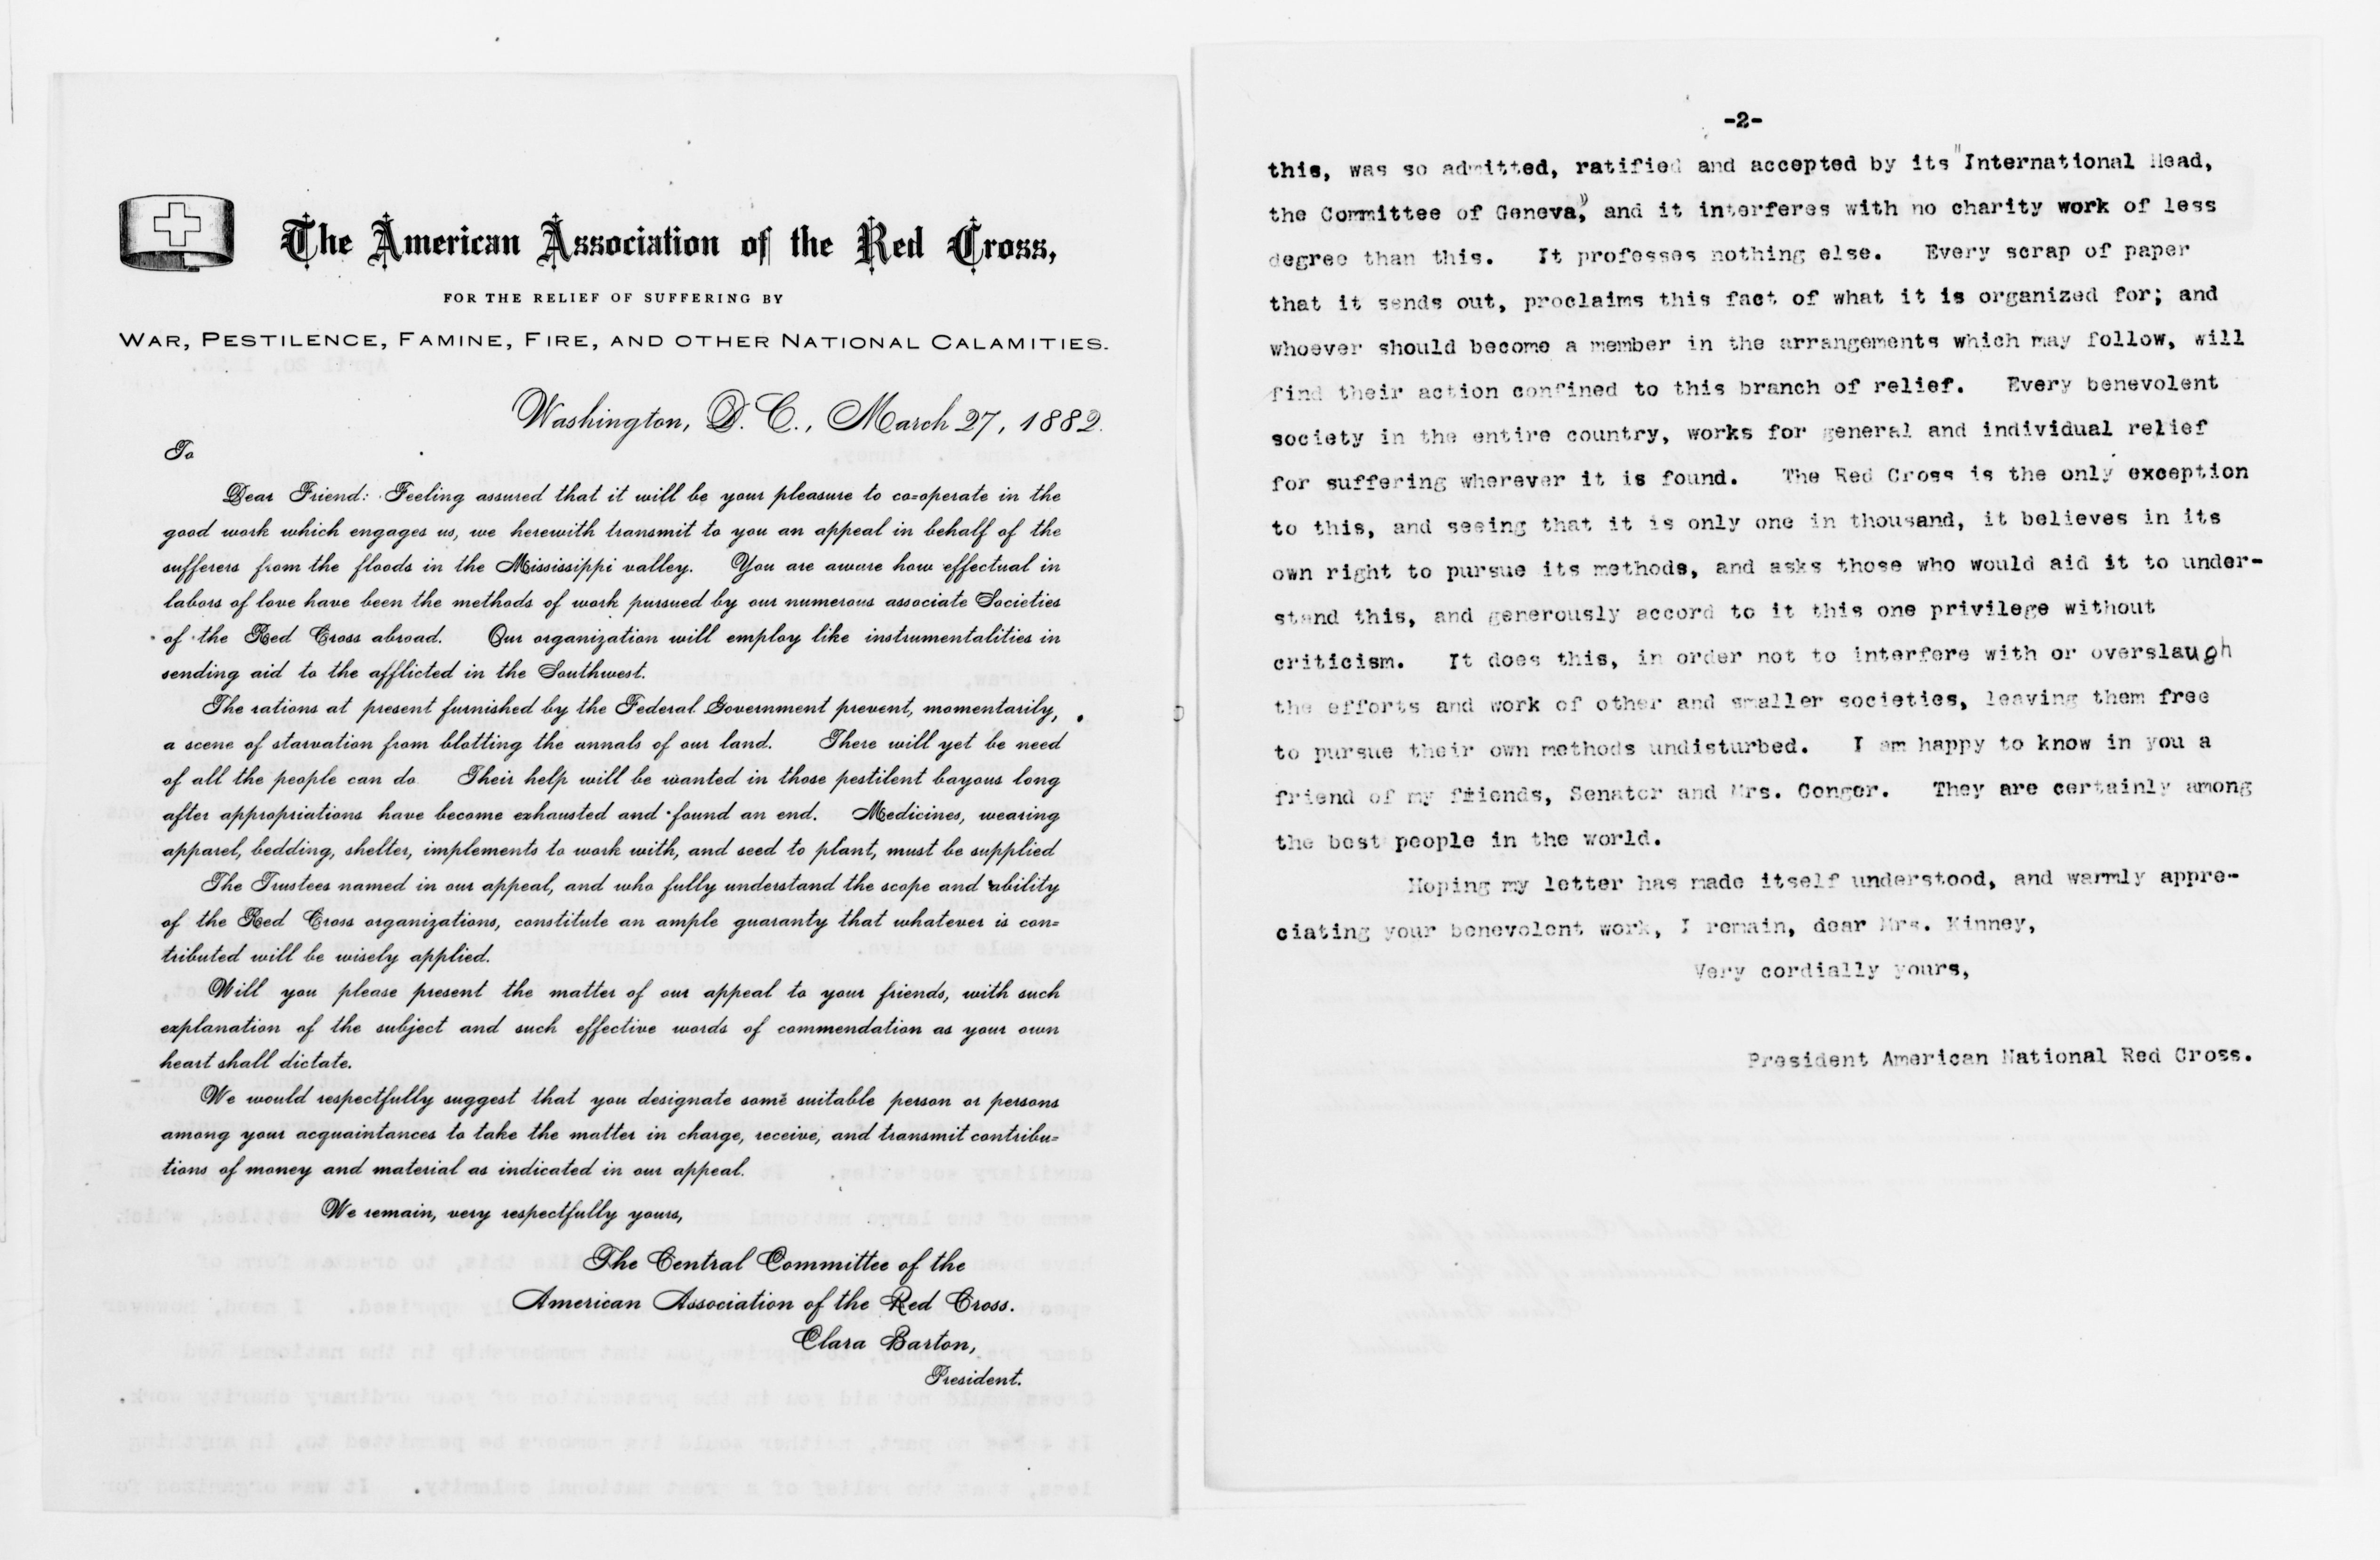 The American Association of the Red Cross,
FOR THE RELIEF OF SUFFERING BY
WAR, PESTILENCE, FAMINE, FIRE, AND OTHER NATIONAL CALAMITIES.
Washington, D. C., March 27, 1882.
To
Dear Friend: Feeling assured that it will be your pleasure to co=operate in the
good work which engages us, we herewith transmit to you an appeal in behalf of the
sufferers from the floods in the Mississippi valley. You are aware how effectual in
labors of love have been the methods of work pursued by our numerous associate Societies
of the Red Cross abroad. Our organization will employ like instrumentalities in
sending aid to the afflicted in the Southwest.
The rations at present furnished by the Federal Government prevent, momentarily,
a scene of starvation from blotting the annals of our land. There will yet be need
of all the people can do Their help will be wanted in those pestilent bayous long
after appropriations have become exhausted and found an end. Medicines, wearing
apparel, bedding, shelter, implements to work with, and seed to plant, must be supplied
The Trustees named in our appeal, and who fully understand the scope and ability
of the Red Cross organizations, constitute an ample guaranty that whatever is con=
tributed will be wisely applied.
Will you please present the matter of our appeal to your friends, with such
explanation of the subject and such effective words of commendation as your own
heart shall dictate.
We would respectfully suggest that you designate some suitable person or persons
among your acquaintances to take the matter in charge, receive, and transmit contribu=
tions of money and material as indicated in our appeal.
We remain, very respectfully yours,
The Central Committee of the
American Association of the Red Cross.
Clara Barton,
President.
-2-
this, was so admitted, ratified and accepted by its "International Head,
the Committee of Geneva," and it interferes with no charity work of less
degree than this. It professes nothing else. Every scrap of paper
that it sends out, proclaims this fact of what it is organized for; and
whoever should become a member in the arrangements which may follow, will
find their action confined to this branch of relief. Every benevolent
society in the entire country, works for general and individual relief
for suffering wherever it is found. The Red Cross is the only exception
to this, and seeing that it is only one in thousand, it believes in its
own right to pursue its methods, and asks those who would aid it to under-
stand this, and generously accord to it this one privilege without
criticism. It does this, in order not to interfere with or overslaugh
the efforts and work of other and smaller societies, leaving them free
to pursue their own methods undisturbed. I am happy to know in you a
friend of my friends, Senator and Mrs. Conger. They are certainly among
the best people in the world.
Hoping my letter has made itself understood, and warmly appre-
ciating your benevolent work, I remain, dear Mrs. Kinney,
Very cordially yours,
President American National Red Cross.